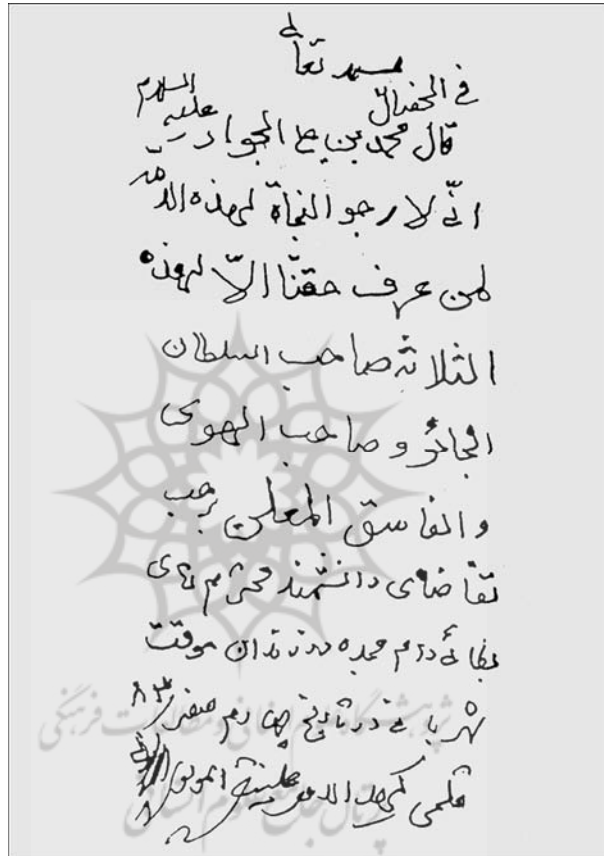 بسمه تعالی
فی الخصال
قال محمد بن علی الجواد علیه السلام
انّی لارجو النجاة لهذه الامّة
لمن عرف حقنّا الّا لهذه
الثلاثه صاحب السلطان
الجائر و صاحب الهوی
و الفاسق المعلن برحب
تقاضای دانشمند محترم آقای
دام مجده در زندان موقت
شهربانی در تاریخ چهارم صفر ۸۳
قلمی گردید
پژوهشگاه علوم انسانی و مطالعات فرهنگی
پرتال جامع علوم انسانی